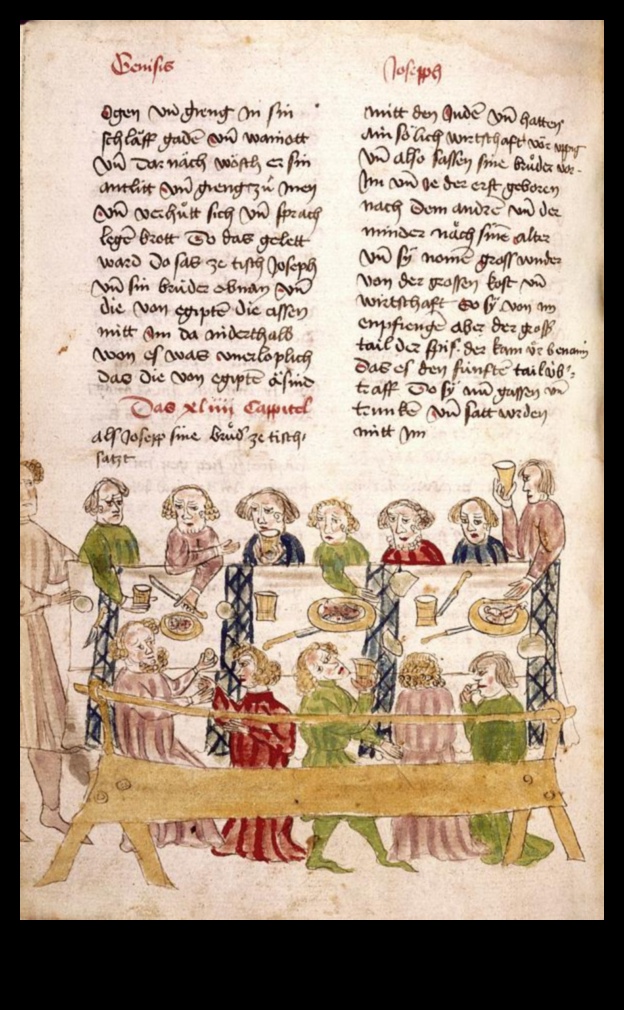 Genisis
ogen vn̄ gieng in sin
schläff gadē vn̄ wainott
vn̄ Dar nach wösch er sin
antlitt vn̄ gieng zů inen
vn̄ verhůtt sich vn̄ sprach
legē brott Do das gelett
ward Do sas ze tisch Joseph
vn̄ sin brüder ebnan vn̄
die von egiptē die assen
mitt Im da niderthalb
won es was vnerloplich
das die von egiptē
Das xliiii Cappitel
als Josepp sine brůd' ze tisch
satzt
Joseph
mitt den Judē vn̄ hatten
ain sölich wirtschaft vor
vn̄ also sassen sine brüder vor
Im vn̄ ie der erst geboren
nach dem andrē vn̄ der
minder nach sinē alter
vn̄ sÿ nomē gross wnder
von der grossen kost vn̄
wirtschaft So sÿ von im
enpfiengē aber der gröss
tail der spis der kam
das es den fünftē tail
traff Do sÿ nun gassen vn̄
trunkē vn̄ satt wrden
mitt Im